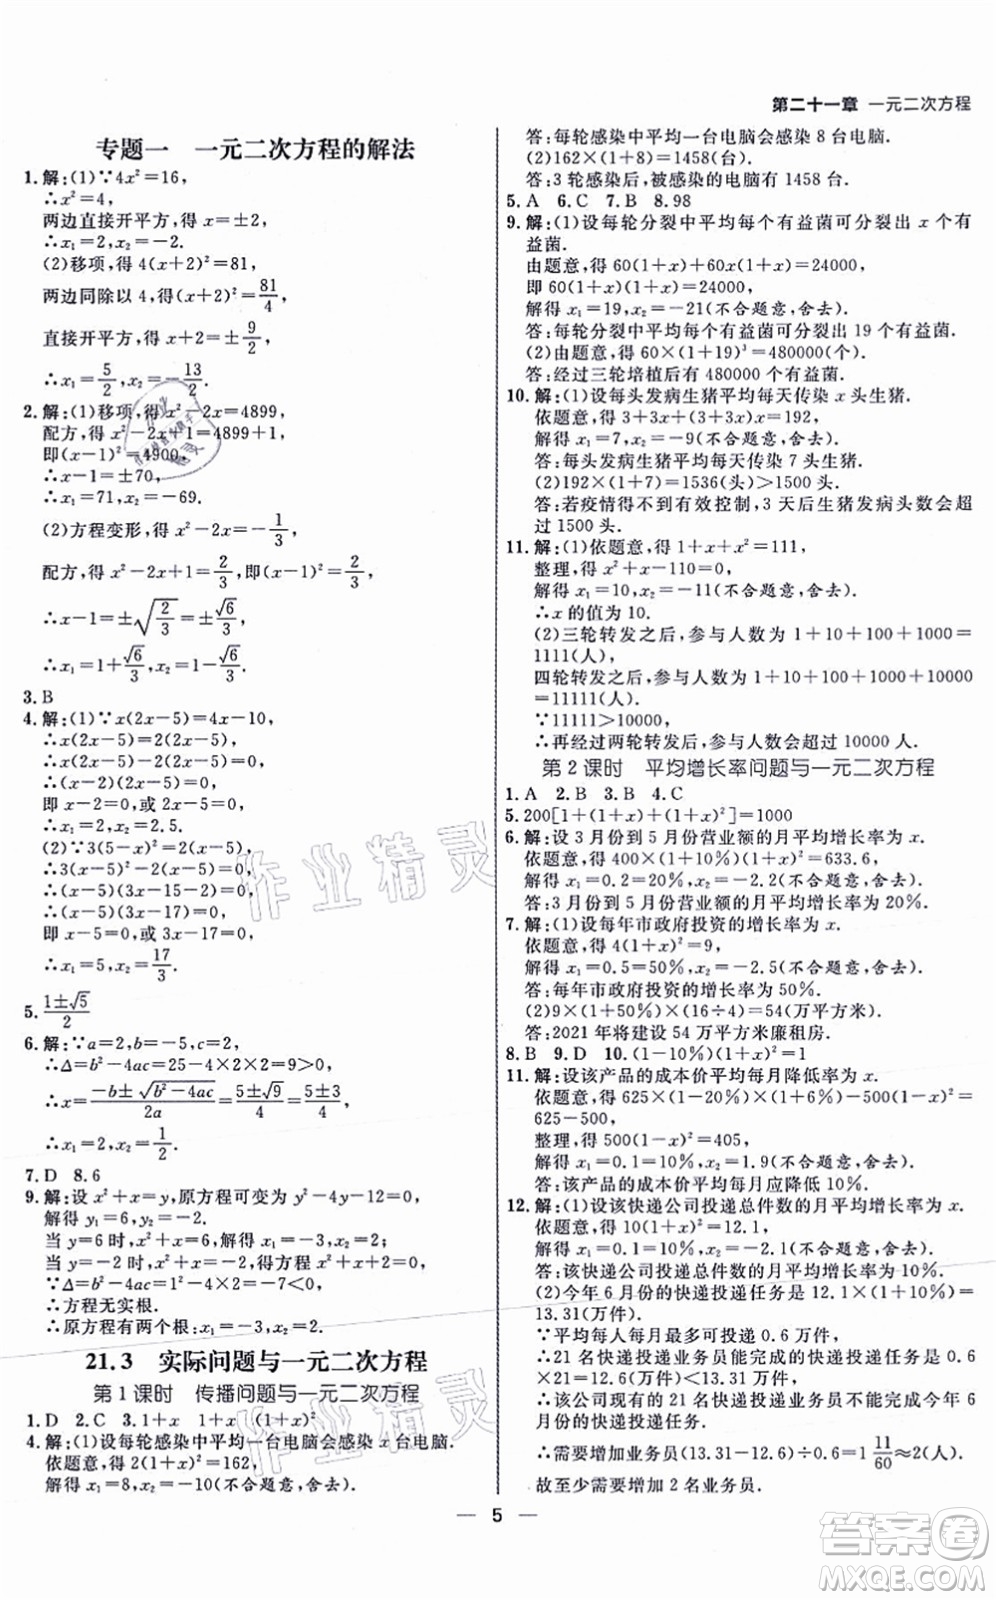 第二十一章 一元二次方程
专题一 一元二次方程的解法
1.解:(1)∵4x²=16,
∴x²=4,
两边直接开平方,得x=±2,
∴x₁=2,x₂=-2.
(2)移项,得4(x+2)²=81,
两边同除以4,得(x+2)²=81/4,
直接开平方,得x+2=±9/2,
∴x₁=5/2,x₂=-13/2.
2.解:(1)移项,得x²-2x=4899,
配方,得x²-2x+1=4899+1,
即(x-1)²=4900,
∴x-1=±70,
∴x₁=71,x₂=-69.
(2)方程变形,得x²-2x=-1/3,
配方,得x²-2x+1=2/3,即(x-1)²=2/3,
∴x-1=±√(2/3)=±√6/3,
∴x₁=1+√6/3,x₂=1-√6/3.
3.B
4.解:(1)∵x(2x-5)=4x-10,
∴x(2x-5)=2(2x-5),
∴x(2x-5)-2(2x-5)=0,
∴(x-2)(2x-5)=0,
即x-2=0,或2x-5=0,
∴x₁=2,x₂=2.5.
(2)∵3(5-x)²=2(x-5),
∴3(x-5)²=2(x-5),
∴3(x-5)²-2(x-5)=0,
∴(x-5)(3x-15-2)=0,
∴(x-5)(3x-17)=0,
即x-5=0,或3x-17=0,
∴x₁=5,x₂=17/3.
5.(1±√5)/2
6.解:∵a=2,b=-5,c=2,
∴Δ=b²-4ac=25-4×2×2=9,
∴x=(-b±√(b²-4ac))/2a=(5±√9)/4=(5±3)/4
∴x₁=2,x₂=1/2.
7.D 8.6
9.解:设x²+x=y,原方程可变为y²-4y-12=0,
解得y₁=6,y₂=-2,
当y=6时,x²+x=6,得x₁=-3,x₂=2;
当y=-2时,x²+x=-2,得方程x²+x+2=0,
∵Δ=b²-4ac=1²-4×2=-7<0,
∴方程无实根.
∴原方程有两个根:x₁=-3,x₂=2.
21.3 实际问题与一元二次方程
第1课时 传播问题与一元二次方程
1.D 2.C 3.1+x 1+x (1+x)²
4.解:(1)设每轮感染中平均一台电脑会感染x台电脑.
依题意,得2(1+x)²=162,
解得x₁=8,x₂=-10(不合题意,舍去).
答:每轮感染中平均一台电脑会感染8台电脑.
(2)162×(1+8)=1458(台).
答:3轮感染后,被感染的电脑有1458台.
5.A 6.C 7.B 8.98
9.解:(1)设每轮分裂中平均每个有益菌可分裂出x个有
益菌.
由题意,得60(1+x)+60x(1+x)=24000,
即60(1+x)(1+x)=24000,
解得x₁=19,x₂=-21(不合题意,舍去).
答:每轮分裂中平均每个有益菌可分裂出19个有益菌.
(2)由题意,得60×(1+19)³=480000(个).
答:经过三轮培植后有480000个有益菌.
10.解:(1)设每头发病生猪平均每天传染x头生猪.
依题意,得3+3x+(3+3x)x=192,
解得x₁=7,x₂=-9(不合题意,舍去).
答:每头发病生猪平均每天传染7头生猪.
(2)192×(1+7)=1536(头)>1500头.
答:若疫情得不到有效控制,3天后生猪发病头数会超
过1500头.
11.解:(1)依题意,得1+x+x²=111,
整理,得x²+x-110=0,
解得x₁=10,x₂=-11(不合题意,舍去).
∴x的值为10.
(2)三轮转发之后,参与人数为1+10+100+1000=
1111(人),
四轮转发之后,参与人数为1+10+100+1000+10000
=11111(人).
∵11111>10000,
∴再经过两轮转发后,参与人数会超过10000人.
第2课时 平均增长率问题与一元二次方程
1.A 2.B 3.B 4.C
5.200[1+(1+x)+(1+x)²]=1000
6.解:设3月份到5月份营业额的月平均增长率为x.
依题意,得400×(1+10%)(1+x)²=633.6,
解得x₁=0.2=20%,x₂=-2.2(不合题意,舍去).
答:3月份到5月份营业额的月平均增长率为20%.
7.解:(1)设每年市政府投资的增长率为x.
依题意,得4(1+x)²=9,
解得x₁=0.5=50%,x₂=-2.5(不合题意,舍去).
答:每年市政府投资的增长率为50%.
(2)9×(1+50%)×(16÷4)=54(万平方米).
答:2021年将建设54万平方米廉租房.
8.B 9.D 10.(1-10%)(1+x)²=1
11.解:设该产品的成本价平均每月降低率为x.
依题意,得625×(1-20%)×(1+6%)-500(1-x)²=
625-500,
整理,得500(1-x)²=405,
解得x₁=0.1=10%,x₂=1.9(不合题意,舍去).
答:该产品的成本价平均每月应降低10%.
12.解:(1)设该快递公司投递总件数的月平均增长率为x.
依题意,得10(1+x)²=12.1,
解得x₁=0.1=10%,x₂=-2.1(不合题意,舍去).
答:该快递公司投递总件数的月平均增长率为10%.
(2)今年6月份的快递投递任务是12.1×(1+10%)=
13.31(万件).
∵平均每人每月最多可投递0.6万件,
∴21名快递投递业务员能完成的快递投递任务是0.6
×21=12.6(万件)<13.31万件,
∴该公司现有的21名快递投递业务员不能完成今年6
月份的快递投递任务.
∴需要增加业务员(13.31-12.6)÷0.6=1 11/60≈2(人).
故至少需要增加2名业务员.
— 5 —
作业精灵
作业精灵
答案圈
MXQE.COM